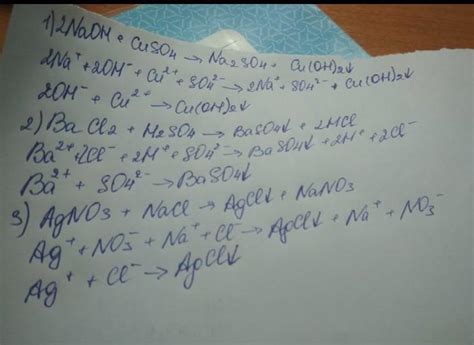 1) 2NaOH + CuSO₄ → Na₂SO₄ + Cu(OH)₂↓
2Na⁺ + 2OH⁻ + Cu²⁺ + SO₄²⁻ → 2Na⁺ + SO₄²⁻ + Cu(OH)₂↓
2OH⁻ + Cu²⁺ → Cu(OH)₂↓
2) BaCl₂ + H₂SO₄ → BaSO₄↓ + 2HCl
Ba²⁺ + 2Cl⁻ + 2H⁺ + SO₄²⁻ → BaSO₄↓ + 2H⁺ + 2Cl⁻
Ba²⁺ + SO₄²⁻ → BaSO₄↓
3) AgNO₃ + NaCl → AgCl↓ + NaNO₃
Ag⁺ + NO₃⁻ + Na⁺ + Cl⁻ → AgCl↓ + Na⁺ + NO₃⁻
Ag⁺ + Cl⁻ → AgCl↓